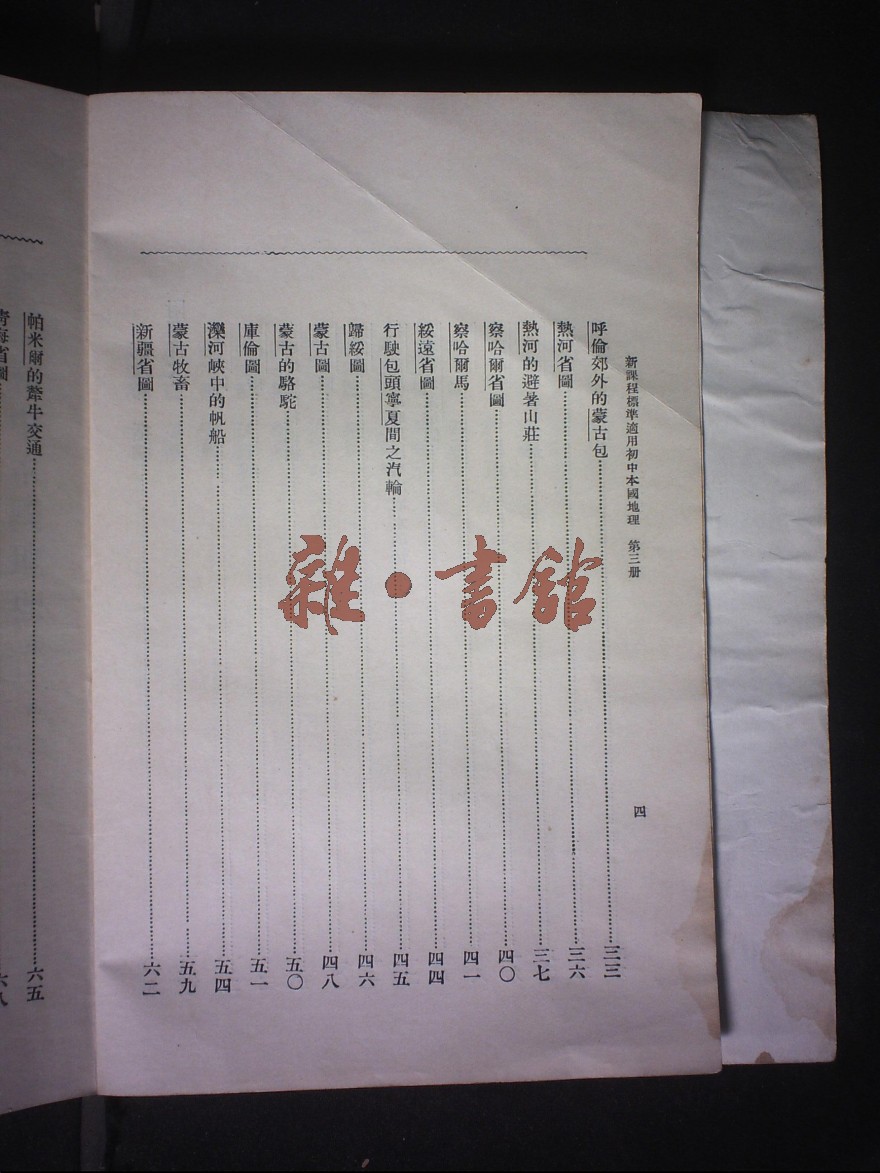 新課程標準適用初中本國地理　第三册
四
呼倫郊外的蒙古包……三三
熱河省圖……三六
熱河的避暑山莊……三七
察哈爾省圖……四〇
察哈爾馬……四一
綏遠省圖……四四
行駛包頭寧夏間之汽輪……四五
歸綏圖……四六
蒙古圖……四八
蒙古的駱駝……五〇
庫倫圖……五一
灤河峽中的帆船……五四
蒙古牧畜……五九
新疆省圖……六二
帕米爾的犛牛交通……六五
青海省圖……六八
雜·書館